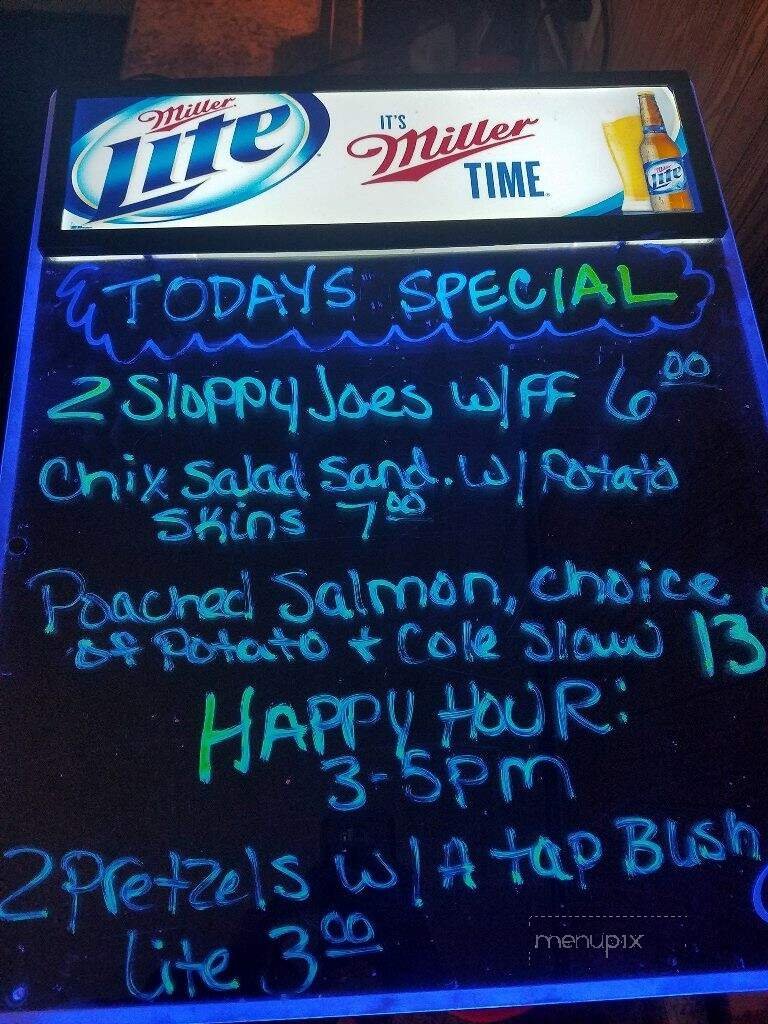 Miller
Lite
IT'S
Miller
TIME
Lite
TODAYS SPECIAL
2 Sloppy Joes w/FF 6.00
Chix Salad Sand. w/ Potato
Skins 7.00
Poached Salmon, choice
of Potato + Cole Slaw 13
HAPPY HOUR:
3-5pm
2 Pretzels w/A tap Bush
Lite 3.00
menupix